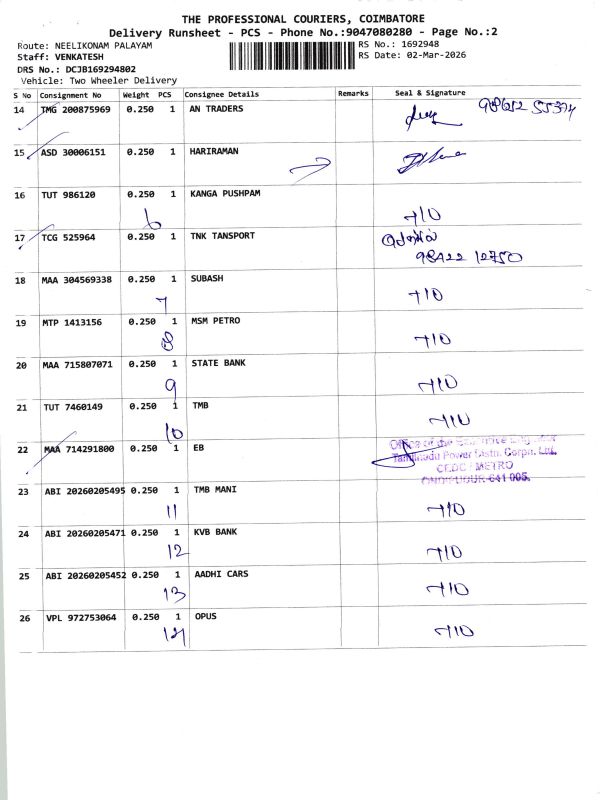 THE PROFESSIONAL COURIERS, COIMBATORE
Delivery Runsheet - PCS - Phone No.:9047080280 - Page No.:2
Route: NEELIKONAM PALAYAM
RS No.: 1692948
Staff: VENKATESH
RS Date: 02-Mar-2026
DRS No.: DCJB169294802
Vehicle: Two Wheeler Delivery
S No Consignment No Weight PCS Consignee Details Remarks Seal & Signature
14 TMG 200875969 0.250 1 AN TRADERS
15 ASD 30006151 0.250 1 HARIRAMAN
16 TUT 986120 0.250 1 KANGA PUSHPAM
6
17 TCG 525964 0.250 1 TNK TANSPORT
98422 12750
18 MAA 304569338 0.250 1 SUBASH
7
19 MTP 1413156 0.250 1 MSM PETRO
8
20 MAA 715807071 0.250 1 STATE BANK
9
21 TUT 7460149 0.250 1 TMB
10
22 MAA 714291800 0.250 1 EB
Office of the Executive Engineer
Tamilnadu Power Distn. Corpn. Ltd.
CEDC / METRO
ONDIPUDUR-641 005.
23 ABI 20260205495 0.250 1 TMB MANI
11
24 ABI 20260205471 0.250 1 KVB BANK
12
25 ABI 20260205452 0.250 1 AADHI CARS
13
26 VPL 972753064 0.250 1 OPUS
14